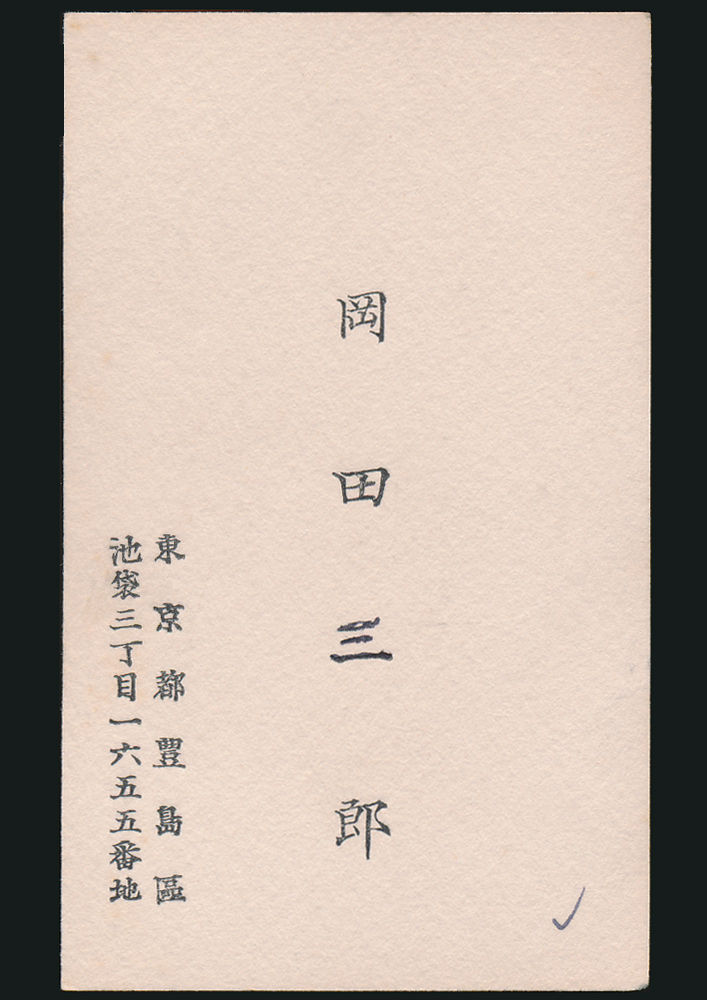 岡田三郎
東京都豐島區
池袋三丁目一六五五番地